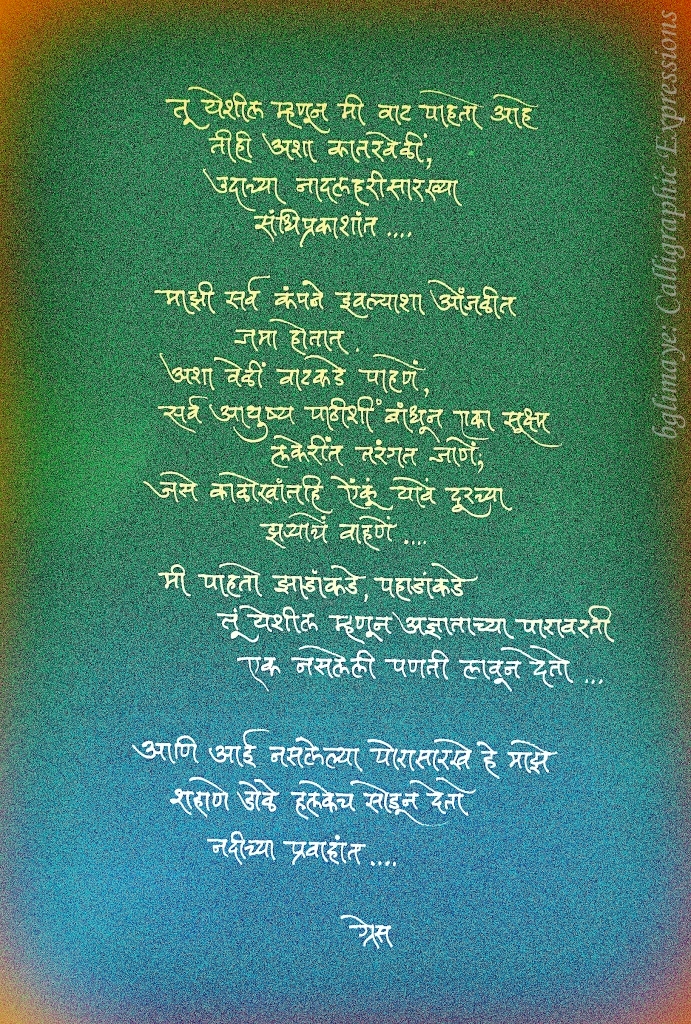 तू येशील म्हणून मी वाट पाहतो आहे
तीही अशा कातरवेळीं,
उदाच्या नादलहरीसारख्या
संधिप्रकाशांत ....
माझी सर्व कंपने इवल्याशा ओंजळीत
जमा होतात.
अशा वेळीं वाटकडे पाहणें,
सर्व आयुष्य पाठीशीं बांधून एका सूक्ष्म
लकेरींत तरंगत जाणें;
जसे काळोखांतहि ऐकूं यावें दूरच्या
झऱ्याचें वाहणें ....
मी पाहतो झाडांकडे, पहाडांकडे
तूं येशील म्हणून अज्ञाताच्या पारावरती
एक नसलेली पणती लावून देतो ...
आणि आई नसलेल्या पोरासारखे हे माझे
शहाणे डोळे हलकेच सोडून देतो
नदीच्या प्रवाहांत ....
ग्रेस
bglimaye: Calligraphic Expressions